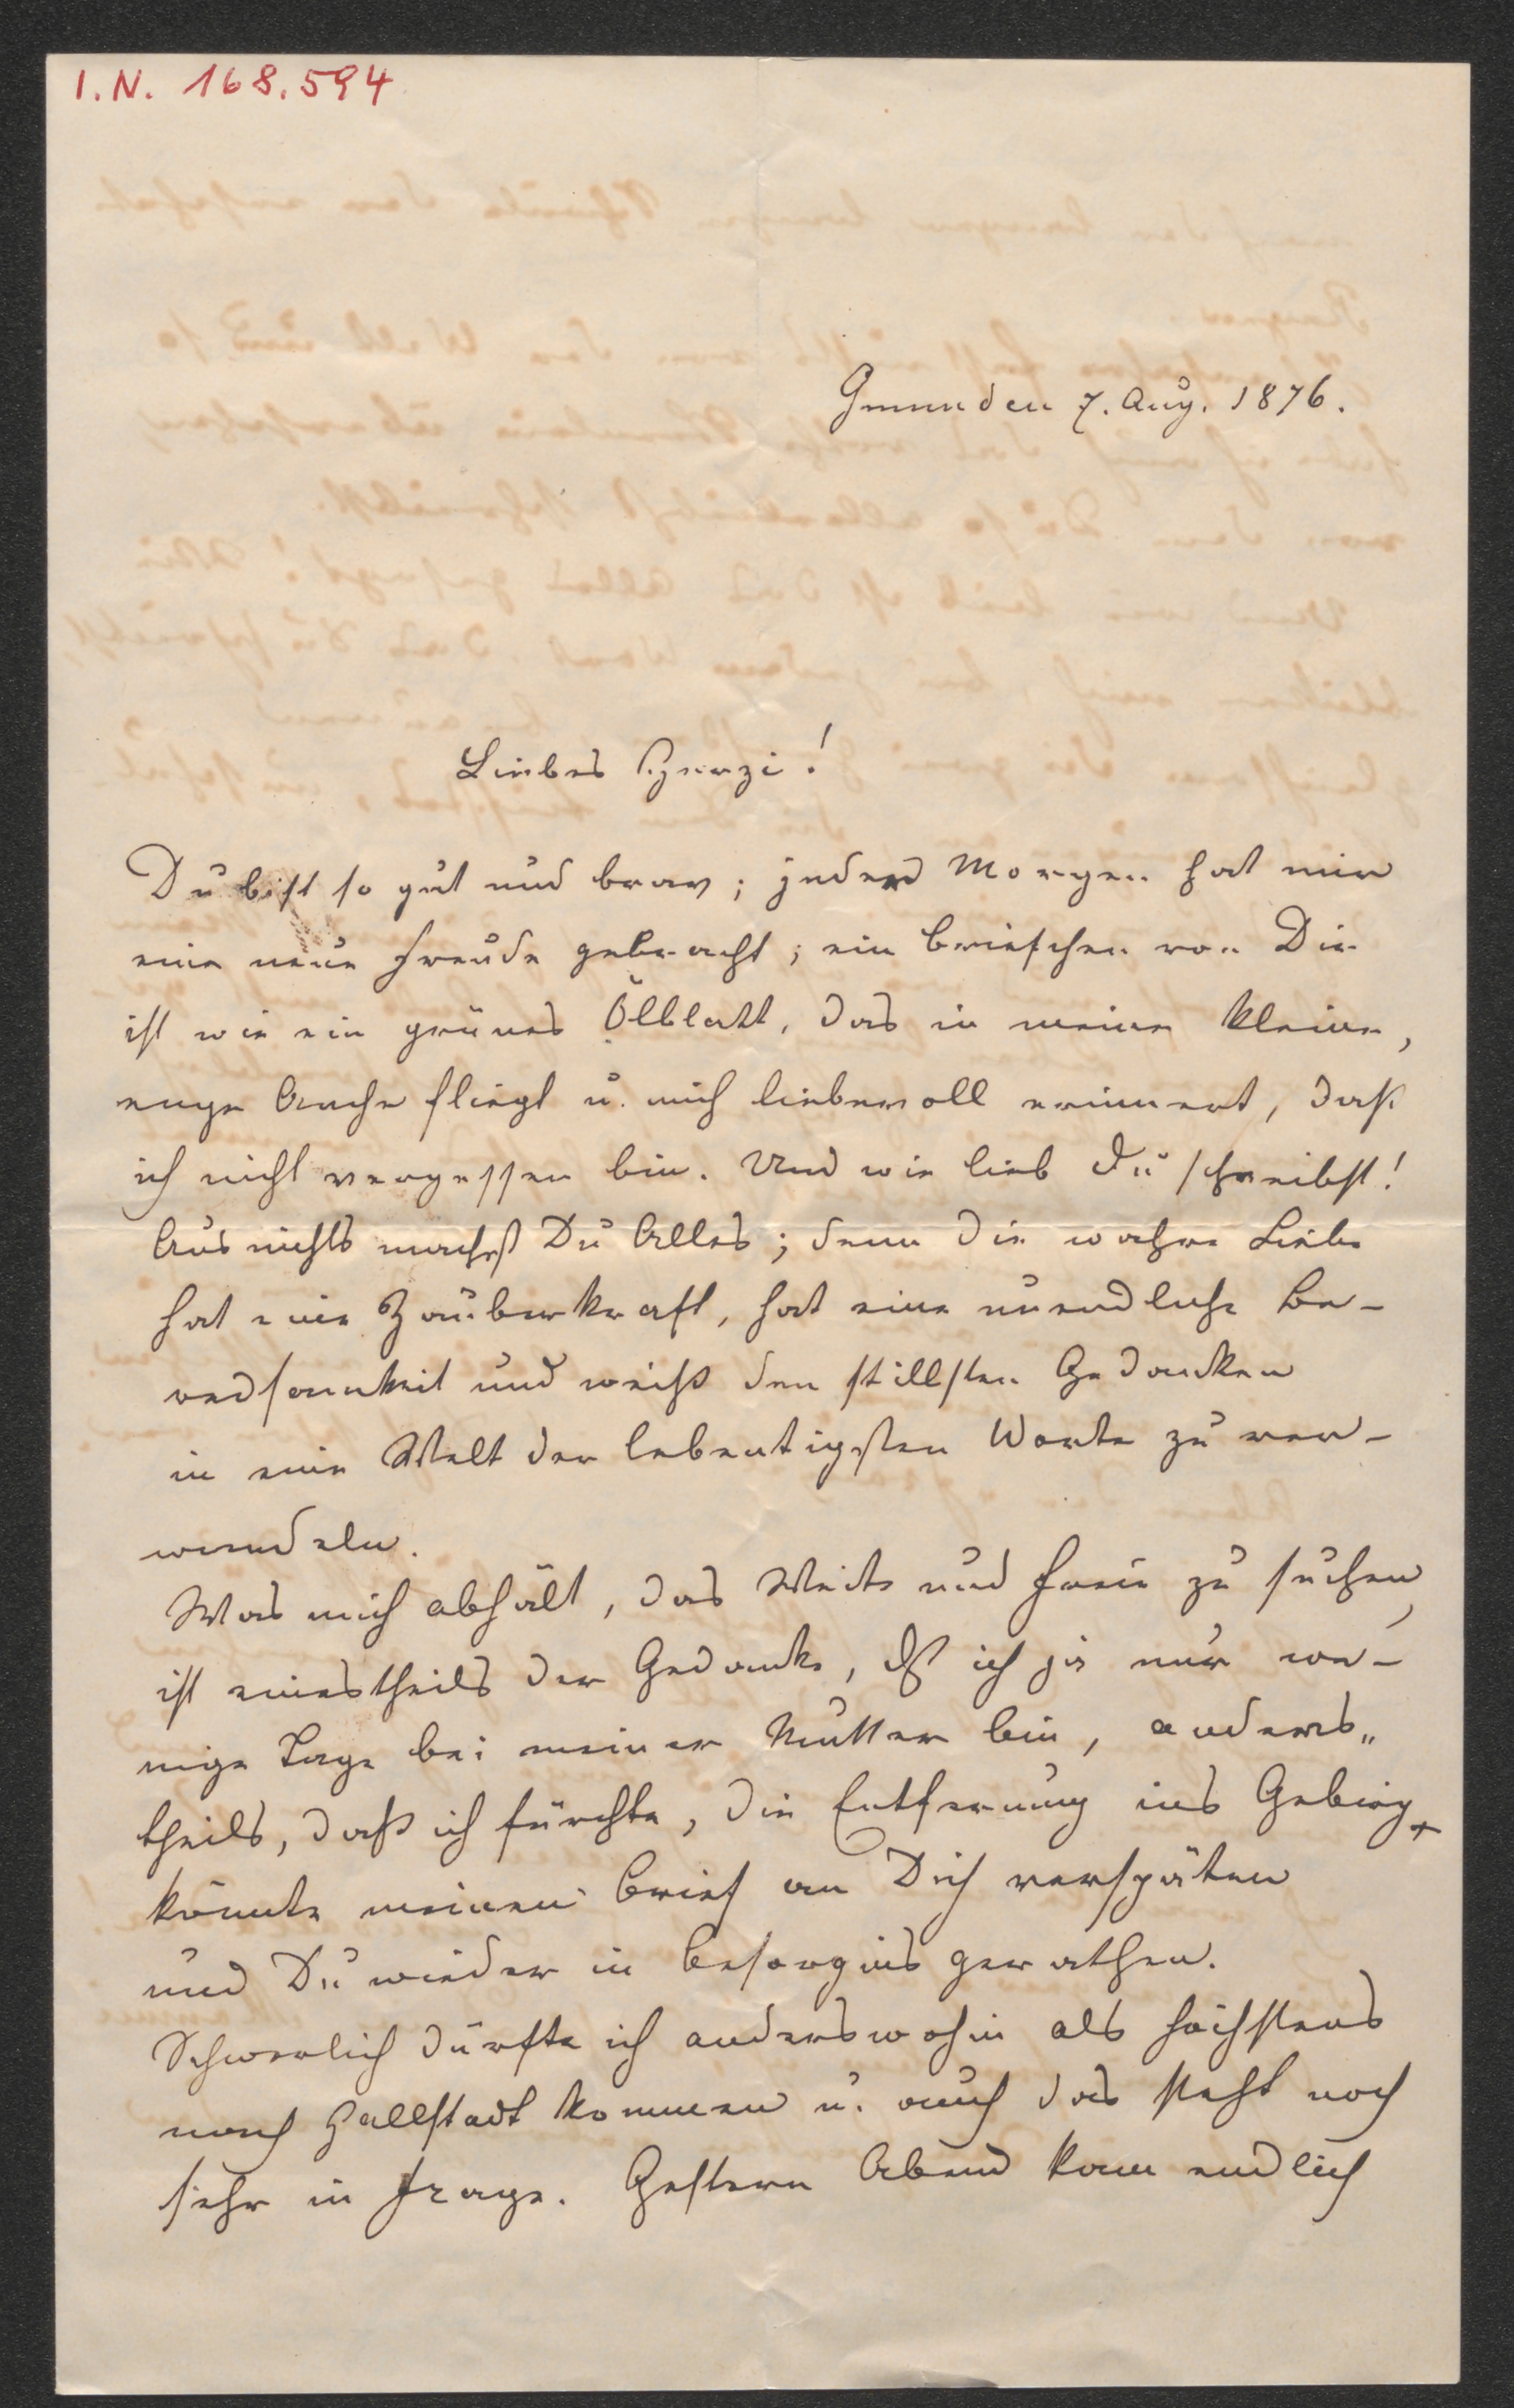 I.N. 168.594
Gmunden 7. Aug. 1876.
Liebes Herzi!
Du bist so gut und brav; jeder Morgen hat mir
eine neue Freude gebracht; ein Briefchen von Dir
ist wie ein grünes Ölblatt, das in meine kleine,
enge Arche fliegt u. mich liebevoll erinnert, daß
ich nicht vergessen bin. Und wie lieb Du schreibst!
Aus nichts machst Du Alles; denn die wahre Liebe
hat eine Zauberkraft, hat eine unendliche Be-
redsamkeit und weiß den stillsten Gedanken
in eine Welt der lebentigsten Worte zu ver-
wandeln.
Was mich abhält, das Weite und Freie zu suchen,
ist einestheils der Gedanke, dß ich ja nur we-
nige Tage bei meiner Mutter bin, anders„
theils, daß ich fürchte, die Entfernung ins Gebirg
könnte meinen Brief an Dich verspäten
und Du wieder in Besorgnis gerathen.
Schwerlich dürfte ich anderswohin als höchstens
nach Hallstadt kommen u. auch das steht noch
sehr in Frage. Gestern Abend kam endlich